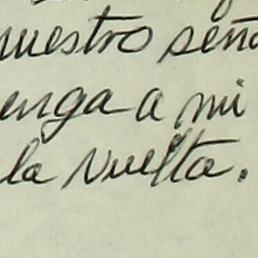 nuestro seño
enga a mi
la vuelta.